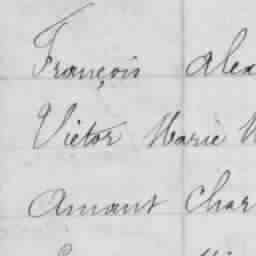 François Alex
Victor Marie
Amant Char